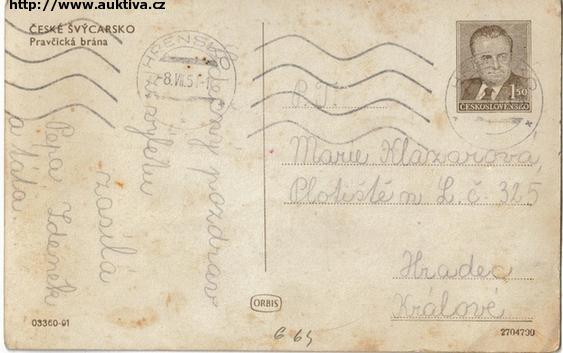 http://www.auktiva.cz
ČESKÉ ŠVÝCARSKO
Pravčická brána
HŘENSKO
-8.VII.5
1.50
ČESKOSLOVENSKO
P. T.
Marie Klazarová,
Plotiště n L. č. 325
Hradec
Králové
Srdečný pozdrav
z výletu
zasílá
Pepa Zdeněk
a táta
ORBIS
03360-91
2704799
G 64